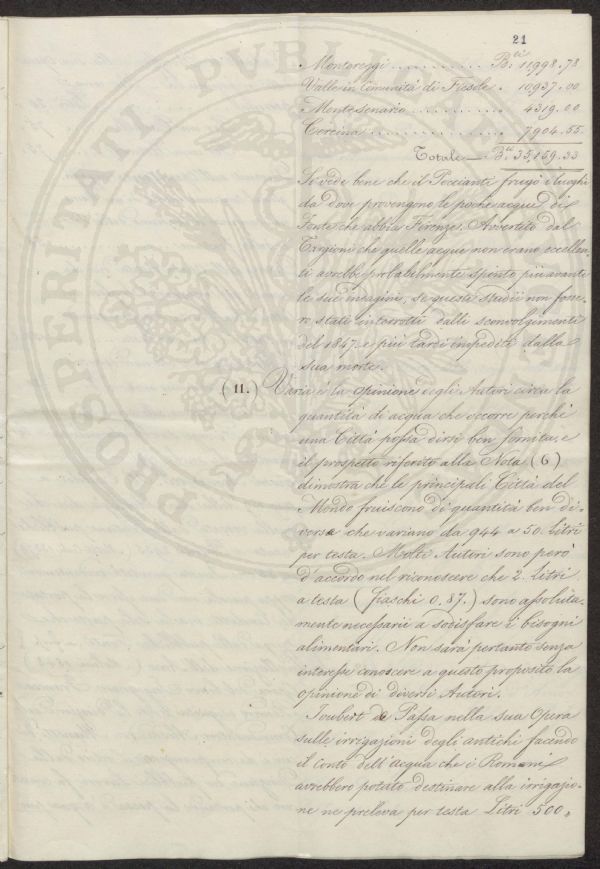 21
Montereggi ............ B.ili 11998.78
Valle in Comunità di Fiesole . 10937.00
Montesenario ............ 4319.00
Cercina ................ 7904.55
Totale — B.li 35,159.33
Si vede bene che il Poccianti frugò i luoghi
da dove provengono le poche acque di
Fonte che abbia Firenze. Avvertito dal
Targioni che quelle acque non erano eccellen-
ti avrebbe probabilmente spinto più avanti
le sue indagini, se questi studii non fosse-
ro stati interrotti dalli sconvolgimenti
del 1847. e più tardi impediti dalla
sua morte.
(11.) Varia è la opinione degli Autori circa la
quantità di acqua che occorre perchè
una Città possa dirsi ben fornita, e
il prospetto riferito alla Nota (6)
dimostra che le principali Città del
Mondo fruiscono di quantità ben di-
versa che variano da 944 a 50. Litri
per testa. Molti Autori sono però
d'accordo nel riconoscere che 2. Litri
a testa (fiaschi 0.87.) sono assoluta-
mente necessarii a sodisfare i bisogni
alimentari. Non sarà pertanto senza
interesse conoscere a questo proposito la
opinione di diversi Autori.
Joubert de Passa nella sua Opera
sulle irrigazioni degli antichi facendo
il conto dell'acqua che i Romani
avrebbero potuto destinare alla irrigazio-
ne ne preleva per testa Litri 500,
PROSPERITATI PUBLICAE